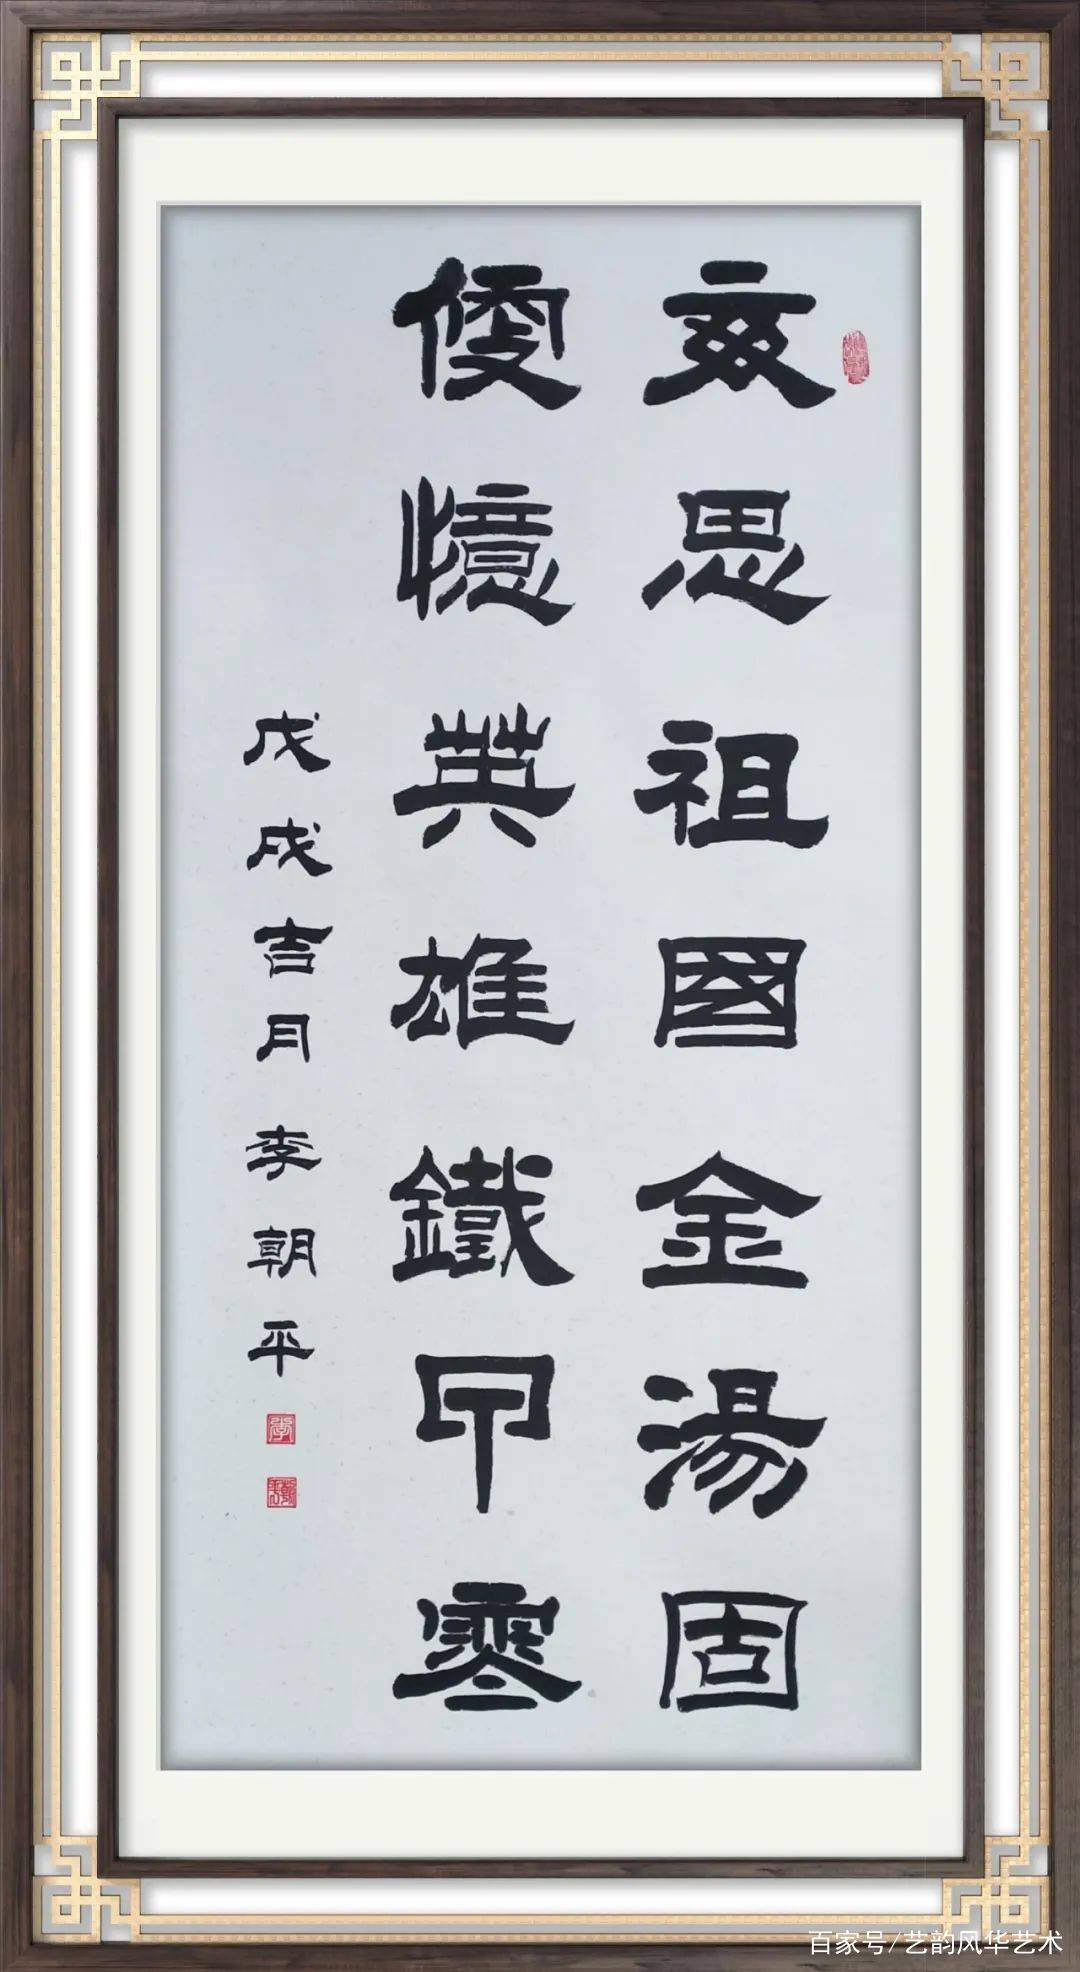 思祖國金湯固
便憶英雄鐵甲寒
戊戌吉月李朝平
百家号/艺韵风华艺术